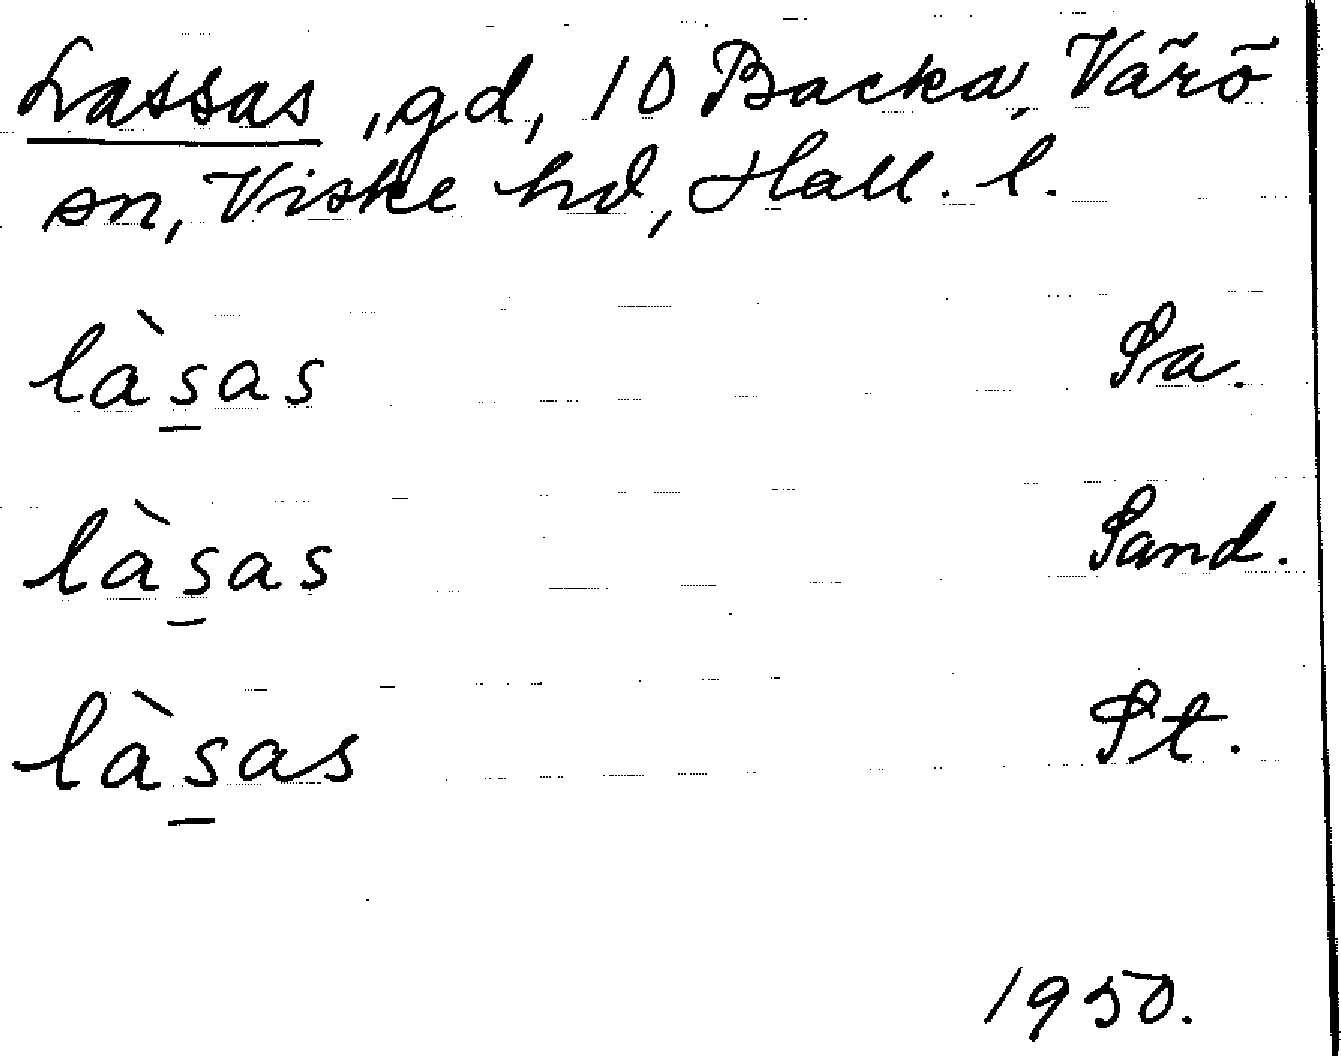 Lassas, gd, 10 Backa, Värö
sn, Viske hd, Hall. l.
làs̱as Sa.
làs̱as Sand.
làs̱as St.
1950.